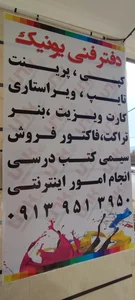 دفتر فنی یونیک
کپی ، پرینت
تایپ ، ویراستاری
کارت ویزیت ،بنر
تراکت،فاکتور فروش
سیمی کتب درسی
انجام امور اینترنتی
۰۹۱۳ ۹۵۱ ۳۹۵۰